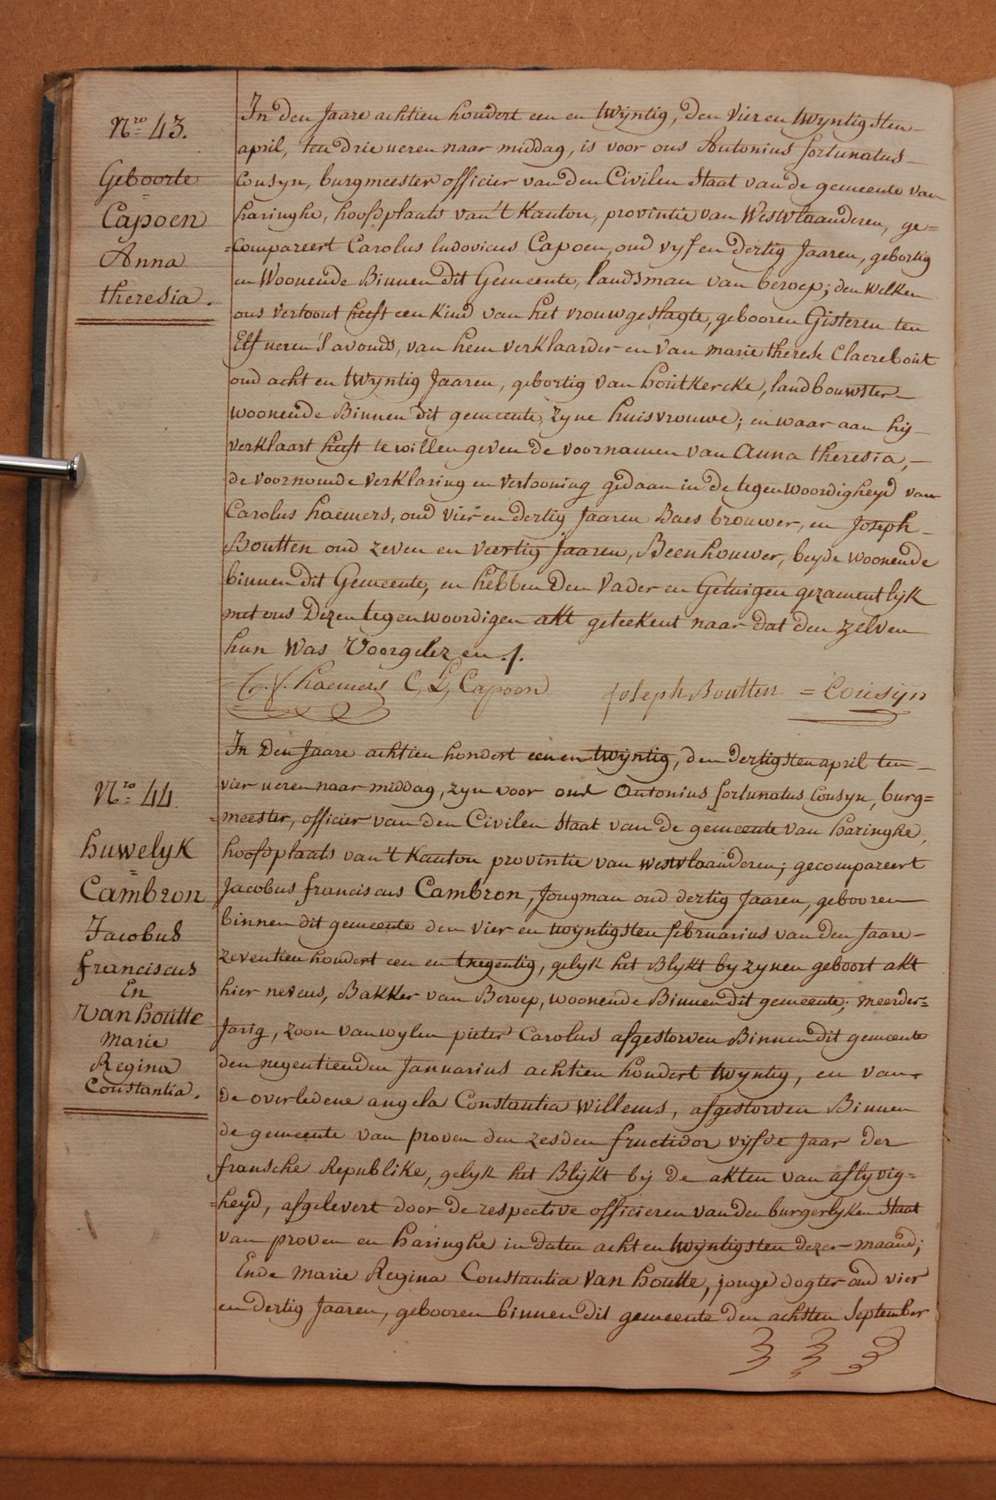 Nro 43.
Geboorte
Capoen
Anna
theresia.
In den Jaare achtien hondert een en twyntig, den vier en twyntigsten
april, ten drie ueren naar middag, is voor ons Antonius fortunatus
Cousyn, burgmeester officier van den Civilen Staat van de gemeente van
haringhe, hoofdplaats van't Kanton, provintie van Westvlaanderen, ge=
=compareert Carolus ludovicus Capoen, oud vyf en dertig Jaaren, gebortig
en Woonende Binnen dit Gemeente, landsman van beroep; den welken
ons vertoont heeft een kind van het vrouwgeslagte, gebooren Gisteren ten
Elf ueren 's avonds, van hem verklaarder en van marie therese Claerebout
oud acht en twyntig Jaaren, gebortig van houtkercke, landbouwster
woonende Binnen dit gemeente, zyne huisvrouwe; en waar aan hij
verklaart heeft te willen geven de voornamen van Anna theresia,
de voornoemde verklaring en vertooning gedaan in de tegenwoordigheyd van
Carolus haemers, oud vier en dertig Jaaren Baes brouwer, en Joseph
Boutten oud zeven en veertig Jaaren, Beenhouwer, beyde woonende
binnen dit Gemeente, en hebben den Vader en Getuigen gezamentlyk
met ons Dezen tegenwoordigen akt geteekent naar dat den zelven
hun Was Voorgelezen ./.
haemers C, L, Capoen Joseph Boutten = Cousyn
Nro 44.
huwelyk
Cambron
Jacobus
franciscus
En
Van houtte
Marie
Regina
Constantia.
In Den Jaare achtien hondert een en twyntig, den dertigsten april ten
vier ueren naar middag, zyn voor ons Antonius fortunatus Cousyn, burg=
=meester, officier van den Civilen Staat van de gemeente van haringhe,
hoofdplaats van't Kanton provintie van westvlaanderen; gecompareert
Jacobus franciscus Cambron, Jongman oud dertig Jaaren, gebooren
binnen dit gemeente den vier en twyntigsten februarius van den Jaare
zeventien hondert een en tnegentig, gelyk het Blykt by zynen geboort akt
hier nevens, Bakker van Beroep, woonende Binnen dit gemeente; meerder=
Jarig, zoon van wylen pieter Carolus afgestorven Binnen dit gemeente
den negentienden Januarius achtien hondert twyntig, en van
de overledene angela Constantia Willems, afgestorven Binnen
de gemeente van proven den zesden fructidor vyfde Jaar der
fransche Republike, gelyk het Blykt bij de akten van aflyvig=
=heyd, afgelevert door de respective officieren van den burgerlyken Staat
van proven en haringhe in daten acht en twyntigsten dezer maand;
Ende Marie Regina Constantia Van houtte, jonge dogter oud vier
en dertig Jaaren, gebooren binnen dit gemeente den achtsten September